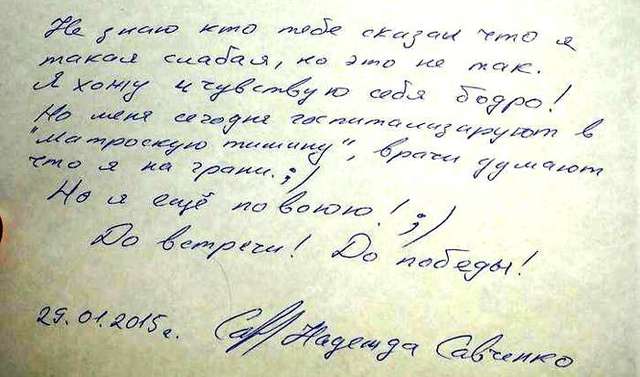 Не знаю кто тебе сказал что я
такая слабая, но это не так.
Я хожу и чувствую себя бодро!
Но меня сегодня госпитализируют в
"матроскую тишину", врачи думают
что я на грани. ;)
Но я ещё повоюю! ;)
До встречи! До победы!
29.01.2015г. Сав Надежда Савченко